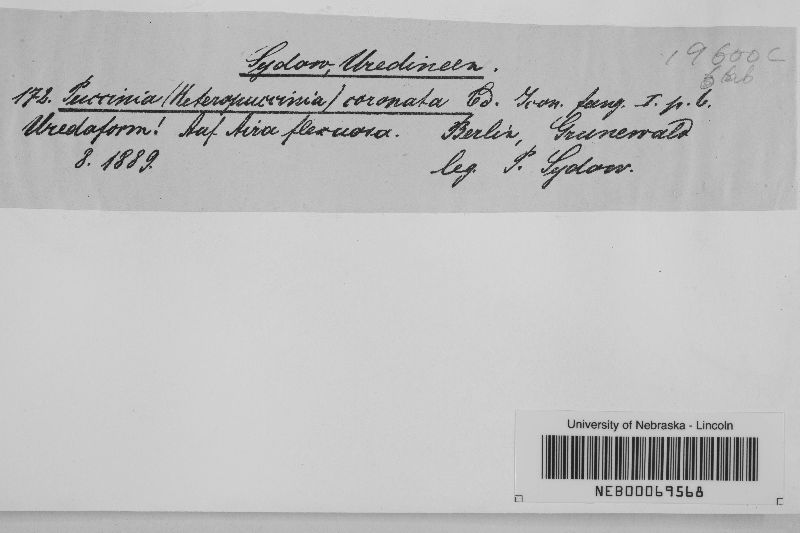 Sydow, Uredineen.
19600C
172. Puccinia (Heteropuccinia) coronata Cd. Icon. fung. I. p. 6.
Uredoform! Auf Aira flexuosa. Berlin, Grunewald
8. 1889. leg. P. Sydow.
University of Nebraska - Lincoln
NEB00069568